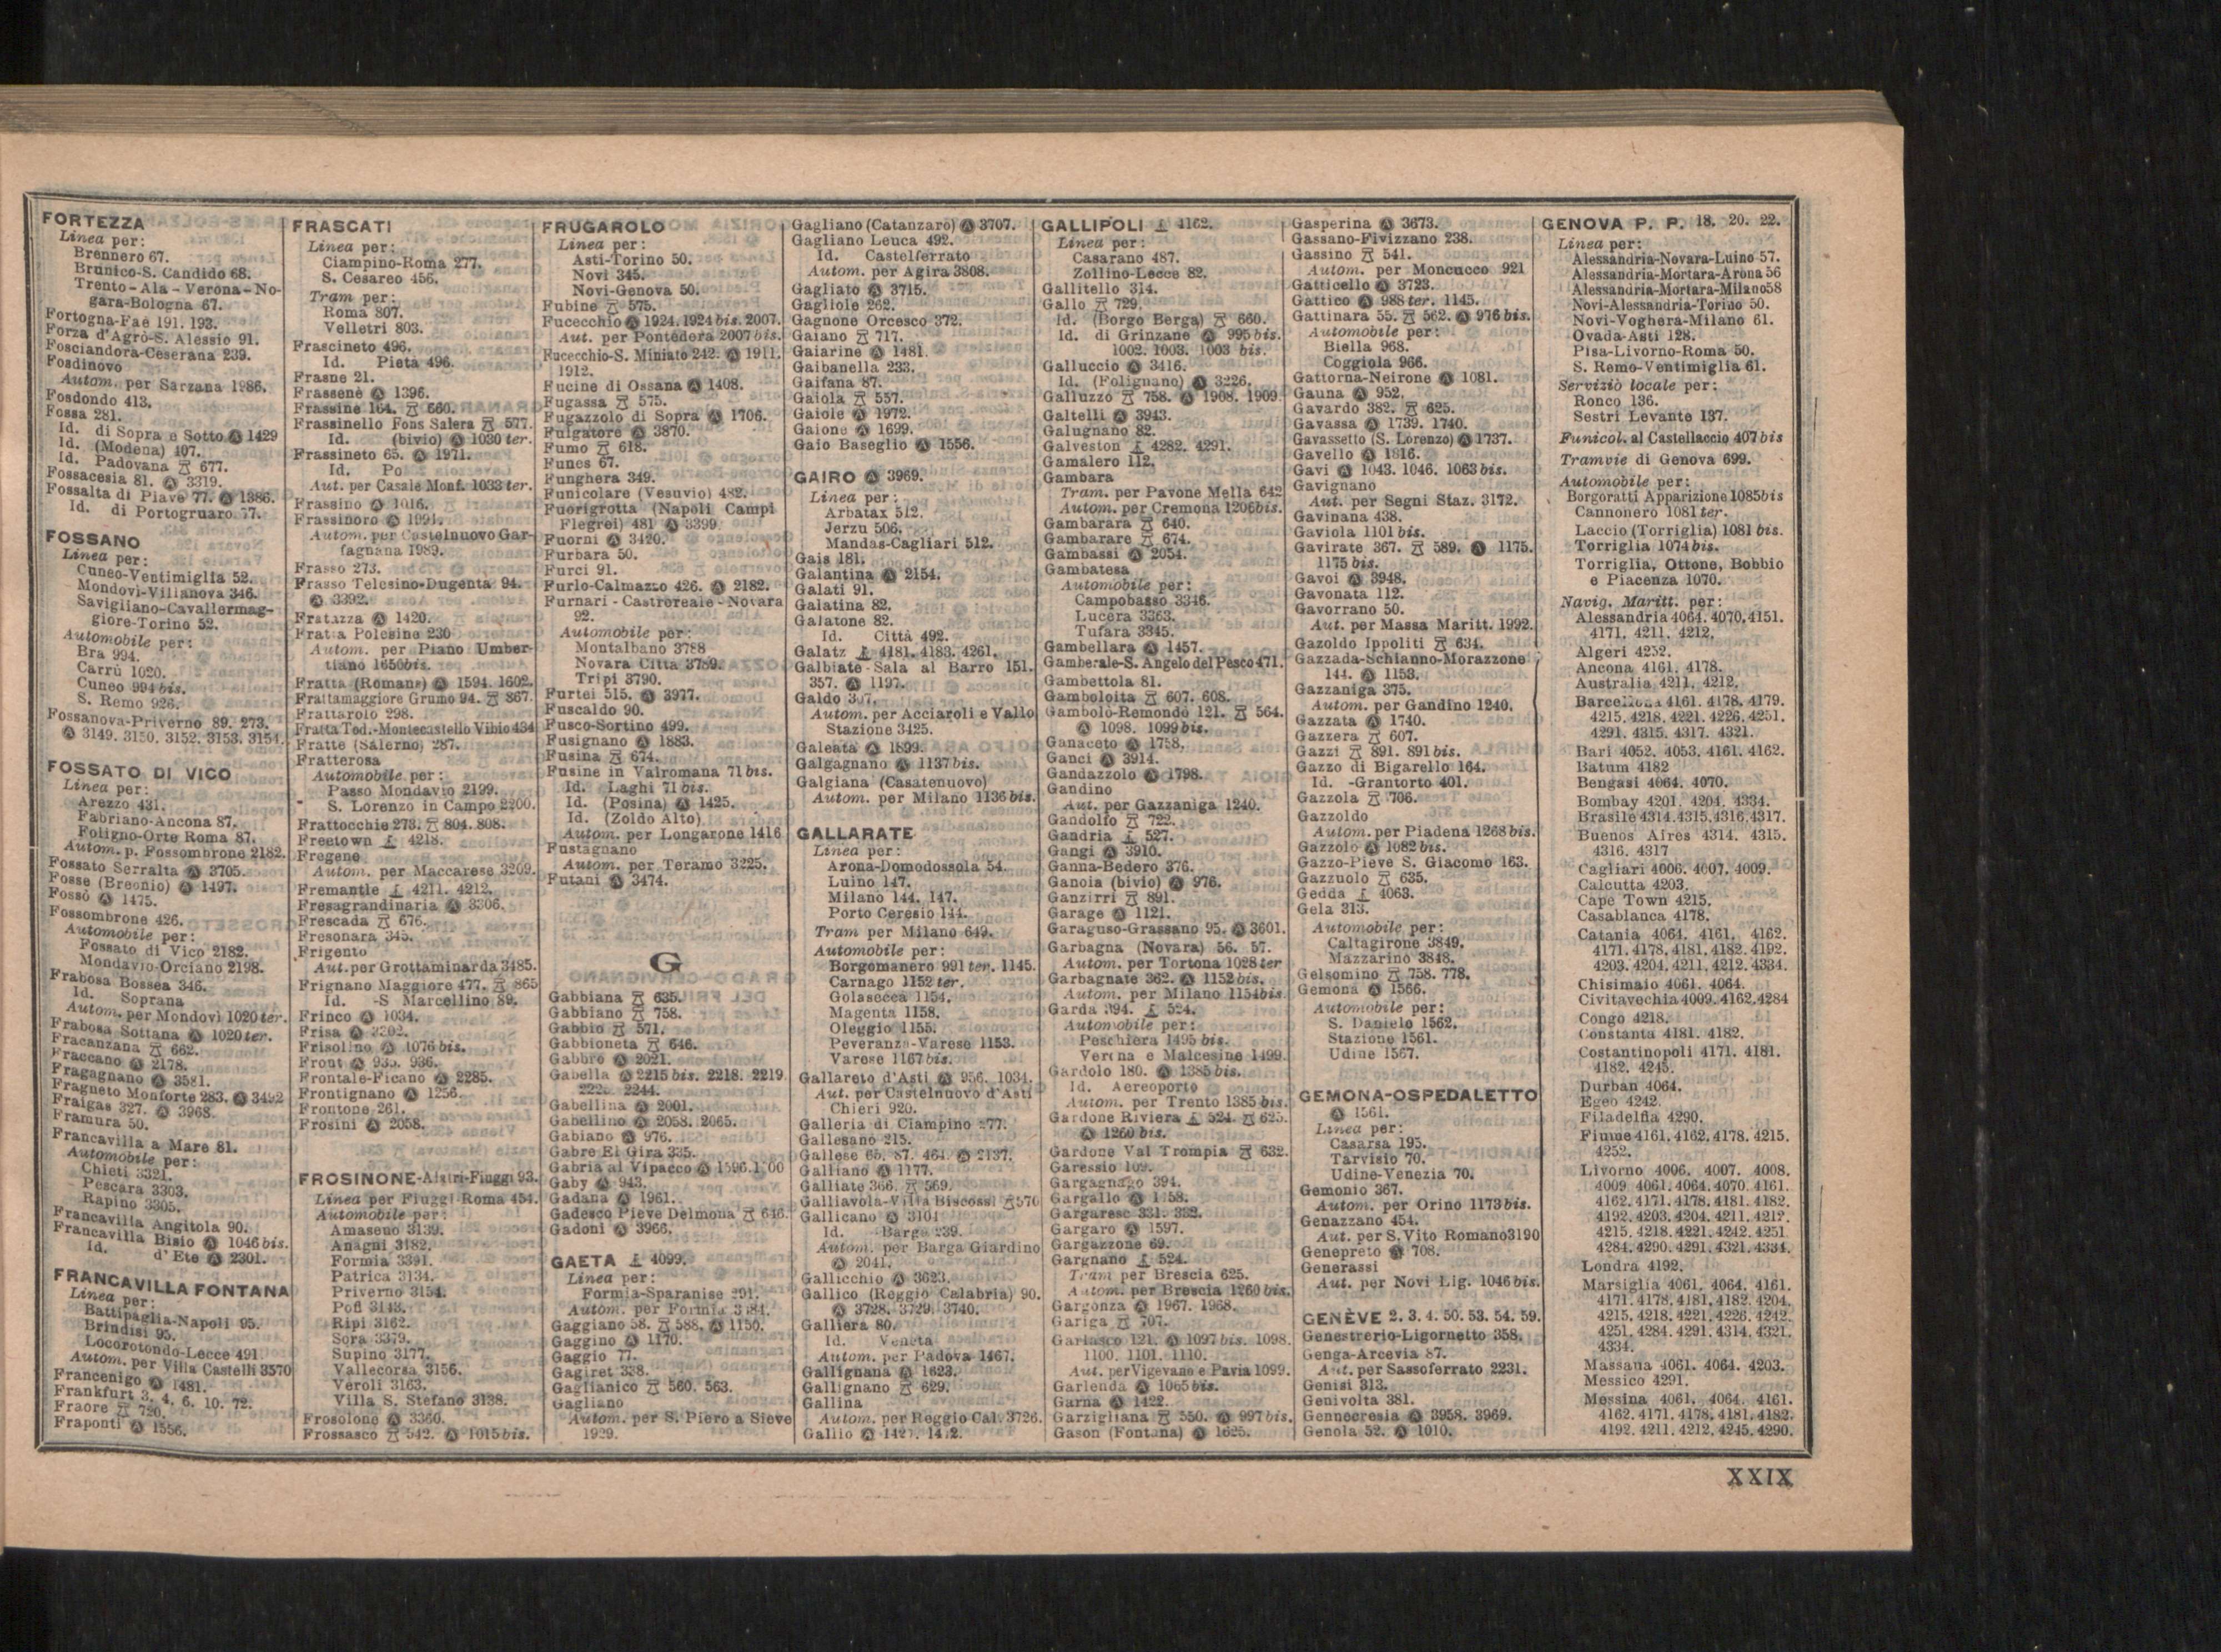 FORTEZZA
Linea per:
Brennero 67.
Brunico-S. Candido 68.
Trento-Ala-Verona-No-
gara-Bologna 67.
Fortogna-Faè 191. 193.
Forza d'Agrò-S. Alessio 91.
Fosciandora-Ceserana 239.
Fosdinovo
Autom. per Sarzana 1986.
Fosdondo 413.
Fossa 281.
Id. di Sopra e Sotto Ⓐ 1429
Id. (Modena) 407.
Id. Padovana 677.
Fossacesia 81. Ⓐ 3319.
Fossalta di Piave 77. Ⓐ 1386.
Id. di Portogruaro 77.
FOSSANO
Linea per:
Cuneo-Ventimiglia 52.
Mondovì-Villanova 346.
Savigliano-Cavallermag-
giore-Torino 52.
Automobile per:
Bra 994.
Carrù 1020.
Cuneo 994 bis.
S. Remo 926.
Fossanova-Priverno 89. 273.
Ⓐ 3149. 3150. 3152. 3153. 3154.
FOSSATO DI VICO
Linea per:
Arezzo 431.
Fabriano-Ancona 87.
Foligno-Orte Roma 87.
Autom. p. Fossombrone 2182.
Fossato Serralta Ⓐ 3705.
Fosse (Breonio) Ⓐ 1497.
Fossò Ⓐ 1475.
Fossombrone 426.
Automobile per:
Fossato di Vico 2182.
Mondavio-Orciano 2198.
Frabosa Bossea 346.
Id. Soprana
Autom. per Mondovì 1020 ter.
Frabosa Sottana Ⓐ 1020 ter.
Fracanzana 662.
Fraccano Ⓐ 2178.
Fragagnano Ⓐ 3581.
Fragneto Monforte 283. Ⓐ 3492
Fraigas 327. Ⓐ 3968.
Framura 50.
Francavilla a Mare 81.
Automobile per:
Chieti 3321.
Pescara 3303.
Rapino 3305.
Francavilla Angitola 90.
Francavilla Bisio Ⓐ 1046 bis.
Id. d'Ete Ⓐ 2301.
FRANCAVILLA FONTANA
Linea per:
Battipaglia-Napoli 95.
Brindisi 95.
Locorotondo-Lecce 491
Autom. per Villa Castelli 3570
Francenigo Ⓐ 1481.
Frankfurt 3. 4. 6. 10. 72.
Fraore 720.
Fraponti Ⓐ 1556.
FRASCATI
Linea per:
Ciampino-Roma 277.
S. Cesareo 456.
Tram per:
Roma 807.
Velletri 803.
Frascineto 496.
Id. Pieta 496.
Frasne 21.
Frassenè Ⓐ 1396.
Frassine 164. 660.
Frassinello Fons Salera 577.
Id. (bivio) Ⓐ 1030 ter.
Frassineto 65. Ⓐ 1971.
Id. Po
Aut. per Casale Monf. 1033 ter.
Frassino Ⓐ 1016.
Frassinoro Ⓐ 1991.
Autom. per Castelnuovo Gar-
fagnana 1989.
Frasso 273.
Frasso Telesino-Dugenta 94.
Ⓐ 3392.
Fratazza Ⓐ 1420.
Fratta Polesine 230
Autom. per Piano Umber-
tiano 1650bis.
Fratta (Romans) Ⓐ 1594. 1602.
Frattamaggiore Grumo 94. 867.
Frattarolo 298.
Fratta Tod.-Montecastello Vibio 434
Fratte (Salerno) 287.
Fratterosa
Automobile per:
Passo Mondavio 2199.
S. Lorenzo in Campo 2200.
Frattocchie 273. 804. 808.
Freetown 4218.
Fregene
Autom. per Maccarese 3209.
Fremantle 4211. 4212.
Fresagrandinaria Ⓐ 3306.
Frescada 676.
Fresonara 345.
Frigento
Aut. per Grottaminarda 3485.
Frignano Maggiore 477. 865
Id. -S Marcellino 89.
Frinco Ⓐ 1034.
Frisa Ⓐ 3302.
Frisolino Ⓐ 1076 bis.
Front Ⓐ 935. 936.
Frontale-Ficano Ⓐ 2285.
Frontignano Ⓐ 1256.
Frontone 261.
Frosini Ⓐ 2058.
FROSINONE-Alatri-Fiuggi 93.
Linea per Fiuggi Roma 454.
Automobile per:
Amaseno 3139.
Anagni 3182.
Formia 3391.
Patrica 3134.
Priverno 3154.
Pofi 3143.
Ripi 3162.
Sora 3379.
Supino 3177.
Vallecorsa 3156.
Veroli 3163.
Villa S. Stefano 3138.
Frosolone Ⓐ 3360.
Frossasco 542. Ⓐ 1015 bis.
FRUGAROLO
Linea per:
Asti-Torino 50.
Novi 345.
Novi-Genova 50.
Fubine 575.
Fucecchio Ⓐ 1924. 1924 bis. 2007.
Aut. per Pontedera 2007 bis.
Fucecchio-S. Miniato 242. Ⓐ 1911.
1912.
Fucine di Ossana Ⓐ 1408.
Fugassa 575.
Fugazzolo di Sopra Ⓐ 1706.
Fulgatore Ⓐ 3870.
Fumo 618.
Funes 67.
Funghera 349.
Funicolare (Vesuvio) 482.
Fuorigrotta (Napoli Campi
Flegrei) 481 Ⓐ 3399
Fuorni Ⓐ 3420.
Furbara 50.
Furci 91.
Furlo-Calmazzo 426. Ⓐ 2182.
Furnari-Castroreale-Novara
92.
Automobile per:
Montalbano 3788
Novara Città 3789.
Tripi 3790.
Furtei 515. Ⓐ 3977.
Fuscaldo 90.
Fusco-Sortino 499.
Fusignano Ⓐ 1883.
Fusina 674.
Fusine in Valromana 71 bis.
Id. Laghi 71 bis.
Id. (Posina) Ⓐ 1425.
Id. (Zoldo Alto)
Autom. per Longarone 1416
Fustagnano
Autom. per Teramo 3225.
Futani Ⓐ 3474.
G
Gabbiana 635.
Gabbiano 758.
Gabbio 571.
Gabbioneta 646.
Gabbro Ⓐ 2021.
Gabella Ⓐ 2215 bis. 2218. 2219
2244.
Gabellina Ⓐ 2001.
Gabellino Ⓐ 2058. 2065.
Gabiano Ⓐ 976.
Gabre El Gira 335.
Gabria al Vipacco Ⓐ 1596.
Gaby Ⓐ 943.
Gadana Ⓐ 1961.
Gadesco Pieve Delmona 646.
Gadoni Ⓐ 3966.
GAETA 4099.
Linea per:
Formia-Sparanise 291.
Autom. per Formia
Gaggiano 58. 588. Ⓐ 1150.
Gaggino Ⓐ 1170.
Gaggio 77.
Gagiret 338.
Gaglianico 560. 563.
Gagliano
Autom. per S. Piero a Sieve
1929.
Gagliano (Catanzaro) Ⓐ 3707.
Gagliano Leuca 492.
Id. Castelferrato
Autom. per Agira 3808.
Gagliato Ⓐ 3715.
Gagliole 262.
Gagnone Orcesco 372.
Gaiano 717.
Gaiarine Ⓐ 1481.
Gaibanella 233.
Gaifana 87.
Gaiola 557.
Gaiole Ⓐ 1972.
Gaione Ⓐ 1699.
Gaio Baseglio Ⓐ 1556.
GAIRO Ⓐ 3969.
Linea per:
Arbatax 512.
Jerzu 506.
Mandas-Cagliari 512.
Gais 181.
Galantina Ⓐ 2154.
Galati 91.
Galatina 82.
Galatone 82.
Id. Città 492.
Galatz 4181. 4183. 4261.
Galbiate-Sala al Barro 151.
357. Ⓐ 1197.
Galdo
Autom. per Acciaroli e Vallo
Stazione 3425.
Galeata Ⓐ 1899.
Galgagnano Ⓐ 1137 bis.
Galgiana (Casatenuovo)
Autom. per Milano 1136 bis.
GALLARATE
Linea per:
Arona-Domodossola 54.
Luino 147.
Milano 144. 147.
Porto Ceresio 144.
Tram per Milano 649.
Automobile per:
Borgomanero 991 ter. 1145.
Carnago 1152 ter.
Golasecca 1154.
Magenta 1158.
Oleggio 1155.
Peveranza-Varese 1153.
Varese 1167 bis.
Gallareto d'Asti Ⓐ 956. 1034.
Aut. per Castelnuovo d'Asti
Chieri 920.
Galleria di Ciampino 277.
Gallesano 215.
Gallese 65. 87. 464. Ⓐ 2137.
Galliano Ⓐ 1177.
Galliate 366. 569.
Galliavola-Villa Biscossi 570
Gallicano Ⓐ 3101
Id. Barga 239.
Autom. per Barga Giardino
Ⓐ 2041.
Gallicchio Ⓐ 3623.
Gallico (Reggio Calabria) 90.
Ⓐ 3728. 3729. 3740.
Galliera 80.
Id. Veneta
Autom. per Padova 1467.
Gallignana Ⓐ 1623.
Gallignano 629.
Gallina
Autom. per Reggio Cal. 3726.
Gallio Ⓐ
GALLIPOLI 4162.
Linea per:
Casarano 487.
Zollino-Lecce 82.
Gallitello 314.
Gallo 729.
Id. (Borgo Berga) 660.
Id. di Grinzane Ⓐ 995 bis.
1002. 1003. 1003 bis.
Galluccio Ⓐ 3416.
Id. (Folignano) Ⓐ 3226.
Galluzzo 758. Ⓐ 1908. 1909
Galtelli Ⓐ 3943.
Galugnano 82.
Galveston 4282. 4291.
Gamalero 112.
Gambara
Tram. per Pavone Mella 642
Autom. per Cremona 1206bis.
Gambarara 640.
Gambarare 674.
Gambassi Ⓐ 2054.
Gambatesa
Automobile per:
Campobasso 3346.
Lucera 3363.
Tufara 3345.
Gambellara Ⓐ 1457.
Gamberale-S. Angelo del Pesco 471.
Gambettola 81.
Gamboloita 607. 608.
Gambolò-Remondò 121. 564.
Ⓐ 1098. 1099 bis.
Ganaceto Ⓐ 1758.
Ganci Ⓐ 3914.
Gandazzolo Ⓐ 1798.
Gandino
Aut. per Gazzaniga 1240.
Gandolfo 722.
Gandria 527.
Gangi Ⓐ 3910.
Ganna-Bedero 376.
Ganoia (bivio) Ⓐ 976.
Ganzirri 891.
Garage Ⓐ 1121.
Garaguso-Grassano 95. Ⓐ 3601.
Garbagna (Novara) 56. 57.
Autom. per Tortona 1028 ter
Garbagnate 362. Ⓐ 1152 bis.
Autom. per Milano 1154bis
Garda 394. 524.
Automobile per:
Peschiera 1495 bis.
Verona e Malcesine 1499.
Gardolo 180. Ⓐ 1385 bis.
Id. Aereoporto
Autom. per Trento 1385 bis.
Gardone Riviera 524. 625.
Ⓐ 1260 bis.
Gardone Val Trompia 632.
Garessio 109.
Gargagnago 394.
Gargallo Ⓐ
Gargaresc 331. 332.
Gargaro Ⓐ 1597.
Gargazzone 69.
Gargnano 524.
Tram per Brescia 625.
Autom. per Brescia 1260 bis.
Gargonza Ⓐ 1967. 1968.
Gariga 707.
Garlasco 121. Ⓐ 1097 bis. 1098.
1100. 1101. 1110.
Aut. per Vigevano e Pavia 1099.
Garlenda Ⓐ 1065 bis.
Garna Ⓐ 1422.
Garzigliana 550. Ⓐ 997 bis.
Gason (Fontana) Ⓐ 1625.
Gasperina Ⓐ 3673.
Gassano-Fivizzano 238.
Gassino 541.
Autom. per Moncucco 921
Gatticello Ⓐ 3723.
Gattico Ⓐ 988 ter. 1145.
Gattinara 55. 562. Ⓐ 976 bis.
Automobile per:
Biella 968.
Coggiola 966.
Gattorna-Neirone Ⓐ 1081.
Gauna Ⓐ 952.
Gavardo 382. 625.
Gavassa Ⓐ 1739. 1740.
Gavassetto (S. Lorenzo) Ⓐ 1737.
Gavello Ⓐ 1816.
Gavi Ⓐ 1043. 1046. 1063 bis.
Gavignano
Aut. per Segni Staz. 3172.
Gavinana 438.
Gaviola 1101 bis.
Gavirate 367. 589. Ⓐ 1175.
1175 bis.
Gavoi Ⓐ 3948.
Gavonata 112.
Gavorrano 50.
Aut. per Massa Maritt. 1992.
Gazoldo Ippoliti 634.
Gazzada-Schianno-Morazzone
144. Ⓐ 1153.
Gazzaniga 375.
Autom. per Gandino 1240.
Gazzata Ⓐ 1740.
Gazzera 607.
Gazzi 891. 891 bis.
Gazzo di Bigarello 164.
Id. -Grantorto 401.
Gazzola 706.
Gazzoldo
Autom. per Piadena 1268 bis.
Gazzolo Ⓐ 1082 bis.
Gazzo-Pieve S. Giacomo 163.
Gazzuolo 635.
Gedda 4063.
Gela 313.
Automobile per:
Caltagirone 3849.
Mazzarino 3848.
Gelsomino 758. 778.
Gemona Ⓐ 1566.
Automobile per:
S. Daniele 1562.
Stazione 1561.
Udine 1567.
GEMONA-OSPEDALETTO
Ⓐ 1561.
Linea per:
Casarsa 195.
Tarvisio 70.
Udine-Venezia 70.
Gemonio 367.
Autom. per Orino 1173 bis.
Genazzano 454.
Aut. per S. Vito Romano 3190
Genepreto 708.
Generassi
Aut. per Novi Lig. 1046 bis.
GENÈVE 2. 3. 4. 50. 53. 54. 59.
Genestrerio-Ligornetto 358.
Genga-Arcevia 87.
Aut. per Sassoferrato 2231.
Genisi 313.
Genivolta 381.
Gennocresia Ⓐ 3958. 3969.
Genola 52. Ⓐ 1010.
GENOVA P. P. 18. 20. 22.
Linea per:
Alessandria-Novara-Luino 57.
Alessandria-Mortara-Arona 56
Alessandria-Mortara-Milano 58
Novi-Alessandria-Torino 50.
Novi-Voghera-Milano 61.
Ovada-Asti 128.
Pisa-Livorno-Roma 50.
S. Remo-Ventimiglia 61.
Servizio locale per:
Ronco 136.
Sestri Levante 137.
Funicol. al Castellaccio 407 bis
Tramvie di Genova 699.
Automobile per:
Borgoratti Apparizione 1085bis
Cannonero 1081 ter.
Laccio (Torriglia) 1081 bis.
Torriglia 1074 bis.
Torriglia, Ottone, Bobbio
e Piacenza 1070.
Navig. Maritt. per:
Alessandria 4064. 4070. 4151.
4171. 4211. 4212.
Algeri 4252.
Ancona 4161. 4178.
Australia 4211. 4212.
Barcellona 4161. 4178. 4179.
4215. 4218. 4221. 4226. 4251.
4291. 4315. 4317. 4321.
Bari 4052. 4053. 4161. 4162.
Batum 4182
Bengasi 4064. 4070.
Bombay 4201. 4204. 4334.
Brasile 4314. 4315. 4316. 4317.
Buenos Aires 4314. 4315.
4316. 4317
Cagliari 4006. 4007. 4009.
Calcutta 4203.
Cape Town 4215.
Casablanca 4178.
Catania 4064. 4161. 4162.
4171. 4178. 4181. 4182. 4192.
4203. 4204. 4211. 4212. 4334.
Chisimaio 4061. 4064.
Civitavechia 4009. 4162. 4284
Congo 4218.
Constanta 4181. 4182.
Costantinopoli 4171. 4181.
4182. 4245.
Durban 4064.
Egeo 4242.
Filadelfia 4290.
Fiume 4161. 4162. 4178. 4215.
4252.
Livorno 4006. 4007. 4008.
4009 4061. 4064. 4070. 4161.
4162. 4171. 4178. 4181. 4182.
4192. 4203. 4204. 4211. 4212.
4215. 4218. 4221. 4242. 4251
4284. 4290. 4291. 4321. 4334.
Londra 4192.
Marsiglia 4061. 4064. 4161.
4171. 4178. 4181. 4182. 4204.
4215. 4218. 4221. 4226. 4242.
4251. 4284. 4291. 4314. 4321.
4334.
Massaua 4061. 4064. 4203.
Messico 4291.
Messina 4061. 4064. 4161.
4162. 4171. 4178. 4181. 4182.
4192. 4211. 4212. 4245. 4290.
XXIX